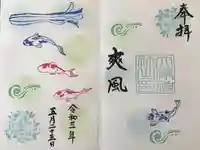 奉拝
爽風
令和三年
五月二十五日